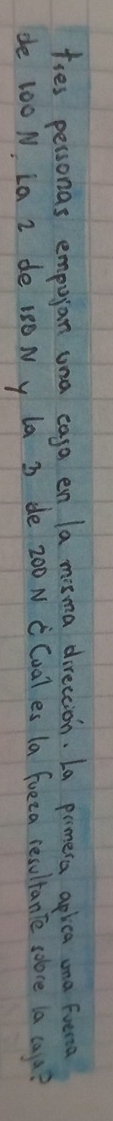 tres personas empujan una caja en la misma dirección. La primera aplica una fuerza
de 100 N, La 2 de 150 N y la 3 de 200 N ¿Cuál es la fueza resultante sobre la caja?